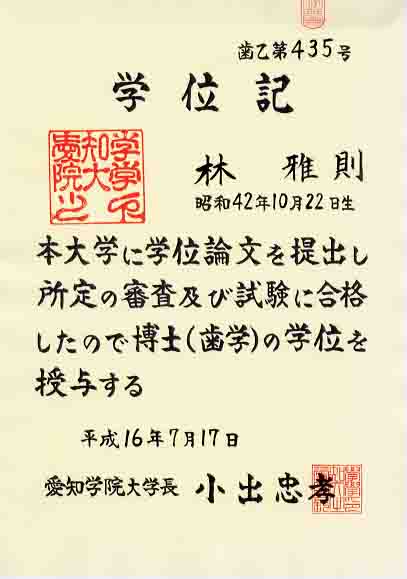 歯乙第435号
学位記
愛知学院大学之印
林 雅則
昭和42年10月22日生
本大学に学位論文を提出し
所定の審査及び試験に合格
したので博士(歯学)の学位を
授与する
平成16年7月17日
愛知学院大学長 小出忠孝